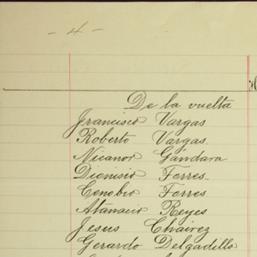 - 4 -
De la vuelta
Francisco Vargas
Roberto Vargas.
Nicanor Gándara
Dionisio Torres.
Cenobio Torres
Atanacio Reyes
Jesus Cháirez
Gerardo Delgadillo